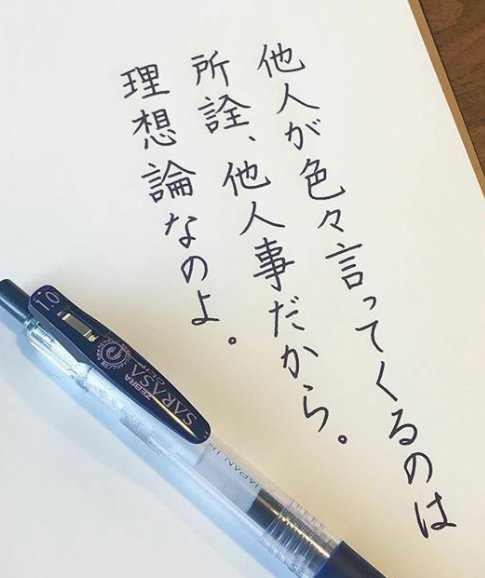 他人が色々言ってくるのは
所詮、他人事だから。
理想論なのよ。
1.0
ZEBRA
SARASA
CLIP
JAPAN